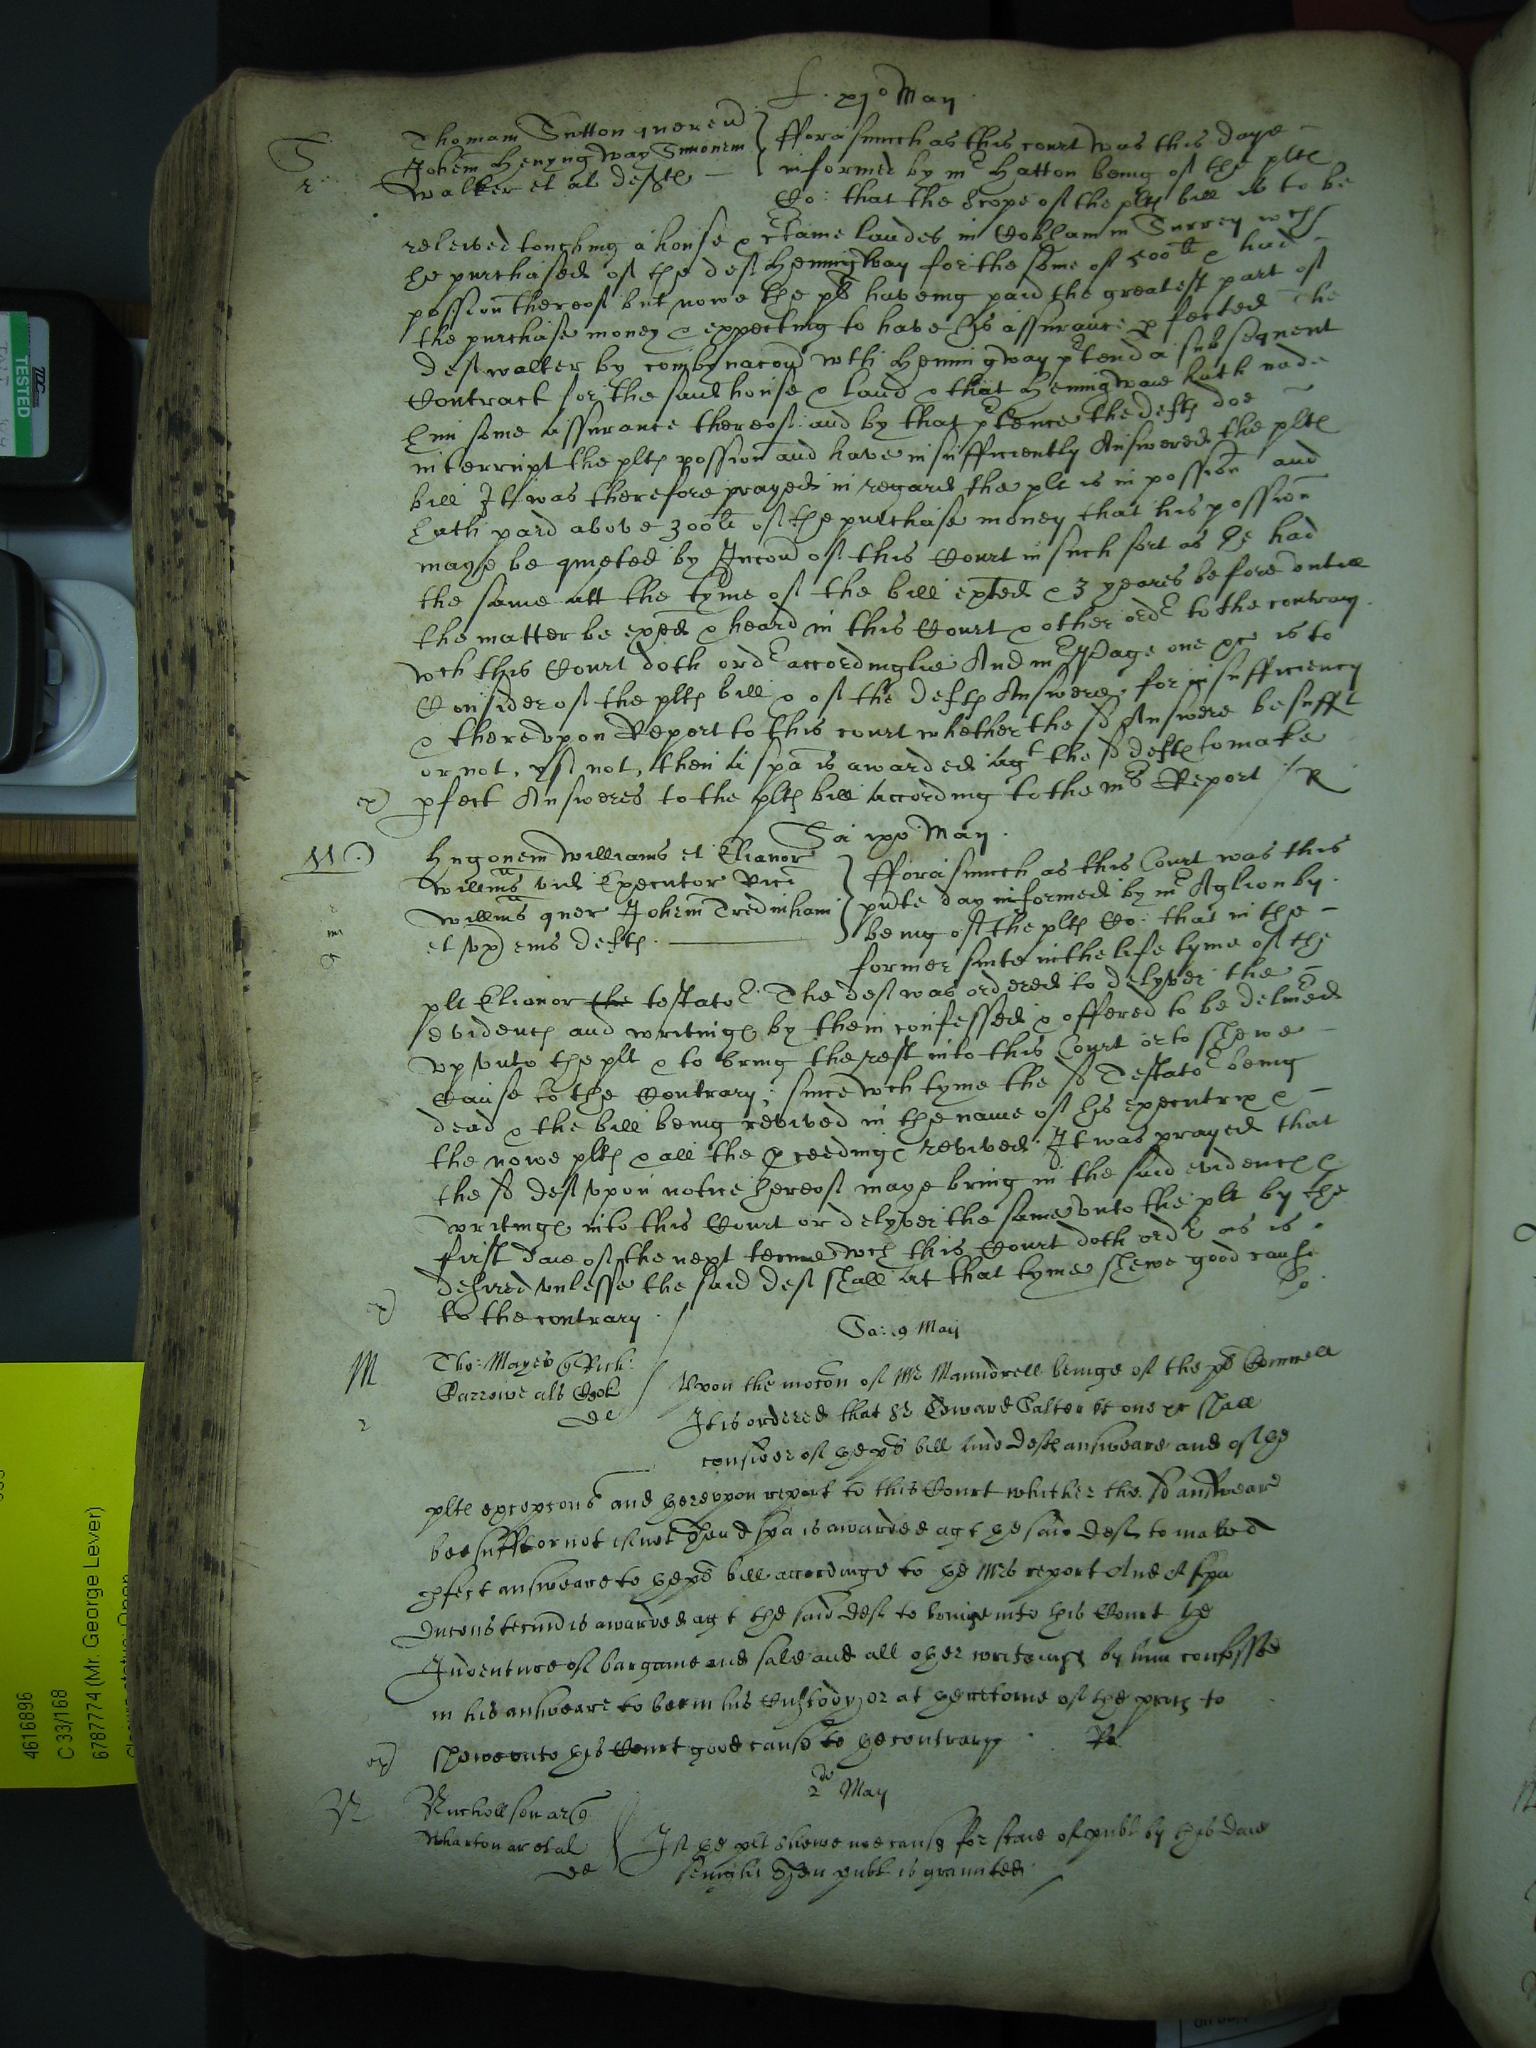 L. xjo May
S Thomam Sutton quer
r Johem Henyngway Simonem
Walker et al deftes
fforasmuch as this court was this daye
informed by mr Hatton being of the pltes
Co: that the scope of the pltes bill is to be
releived touching a house & certaine landes in Cobham in Surrey wch
he purchased of the def Henningway for the some of 500li & had
possion thereof but nowe the plt haveing paid the greatest part of
the purchase money & expecting to have his assurance pfected the
def walker by combynacon wth Henningway ptend a subsequent
Contract for the said house & land & that Henningwaie hath made
him some assurance thereof. and by that ptence the deftes doe
interrupt the pltes possion and have insufficiently Answered the pltes
bill It was therefore prayed in regard the plt is in possion and
hath paid above 300li of the purchase money that his possion
maye be quieted by Incon of this Court in such sort as he had
the same att the tyme of the bill exted & 3 yeares before untill
the matter be exed & heard in this Court & other order to the contrary
wch this Court doth order accordinglie And mr Page one &c is to
Consider of the pltes bill & of the deftes Answere for insufficiency
& thereupon Report to this court whether the sd Answere be sufft
or not, yf not, then a spa is awarded agt the sd deftes to make
ex) pfect Answeres to the pltes bill according to the mrs Report / R
Sa ixo May
W Hugonem Williams et Elianor
Willms vid Executor
Willms quer Johem Tredinham
et ux eius deftes
fforasmuch as this Court was this
pnte day informed by mr Aglionby
being of the pltes Co: that in the
former suite in the life tyme of the
plt Elianor the testator. The def was ordered to delyver the
evidences and writinges by them confessed & offered to be delivered
up unto the plt & to bring the rest into this Court or to shewe
Cause to the Contrary; since wch tyme the sd Testator being
dead & the bill being revived in the name of his executrix &
the nowe pltes & all the pceedinges revived. It was prayed that
the sd def upon notice hereof maye bring in the said evidences &
writinges into this Court or delyver the same unto the plt by the
first daie of the next terme wch this Court doth order as is
desired unlesse the said def shall at that tyme shewe good cause
ex) to the contrary. / Po
Sa: 9 May
M Tho: Mayes q Rich:
2 Barrowe als Cook
de
Upon the mocon of Mr Maundrell beinge of the pls Counsell
It is ordered that Sr Edward Salter kt one &c shall
consider of the pls bill and defts answeare and of the
pltes excepcons and thereuppon report to this Court whither the sd answeare
bee suffte or not if not then a spa is awarded agt the said def to make a
pfect answeare to the pls bill accordinge to the Mrs report And A spa
is awarded agt the said def to bringe into this Court the
Indenture of bargaine and sale and all other writeinges by him confessed
in his answeare to bee in his Custody or at the retorne of the proces to
ex) shewe unto this Court good cause to the contrary. Po
2do May
N Nicholson ar q
Wharton ar et al
de
If the plt shewe noe cause for staie of publ by this daie
senight then publ is graunted
TESTED
4616896
C 33/168
6787774 (Mr. George Lever)